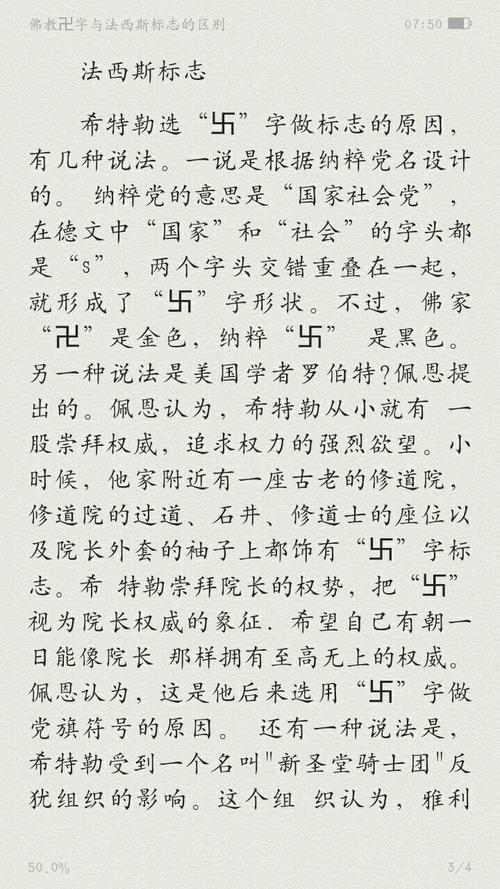 佛教卍字与法西斯标志的区别 07:50
法西斯标志
希特勒选“卐”字做标志的原因，
有几种说法。一说是根据纳粹党名设计
的。 纳粹党的意思是“国家社会党”，
在德文中“国家”和“社会”的字头都
是“s”，两个字头交错重叠在一起，
就形成了“卐”字形状。不过，佛家
“卍”是金色，纳粹“卐” 是黑色。
另一种说法是美国学者罗伯特?佩恩提
出的。佩恩认为，希特勒从小就有 一
股崇拜权威，追求权力的强烈欲望。小
时候，他家附近有一座古老的修道院，
修道院的过道、石井、修道士的座位以
及院长外套的袖子上都饰有“卐”字标
志。希 特勒崇拜院长的权势，把“卐”
视为院长权威的象征．希望自己有朝一
日能像院长 那样拥有至高无上的权威。
佩恩认为，这是他后来选用“卐”字做
党旗符号的原因。 还有一种说法是，
希特勒受到一个名叫"新圣堂骑士团"反
犹组织的影响。这个组 织认为，雅利
50.0% 3/4